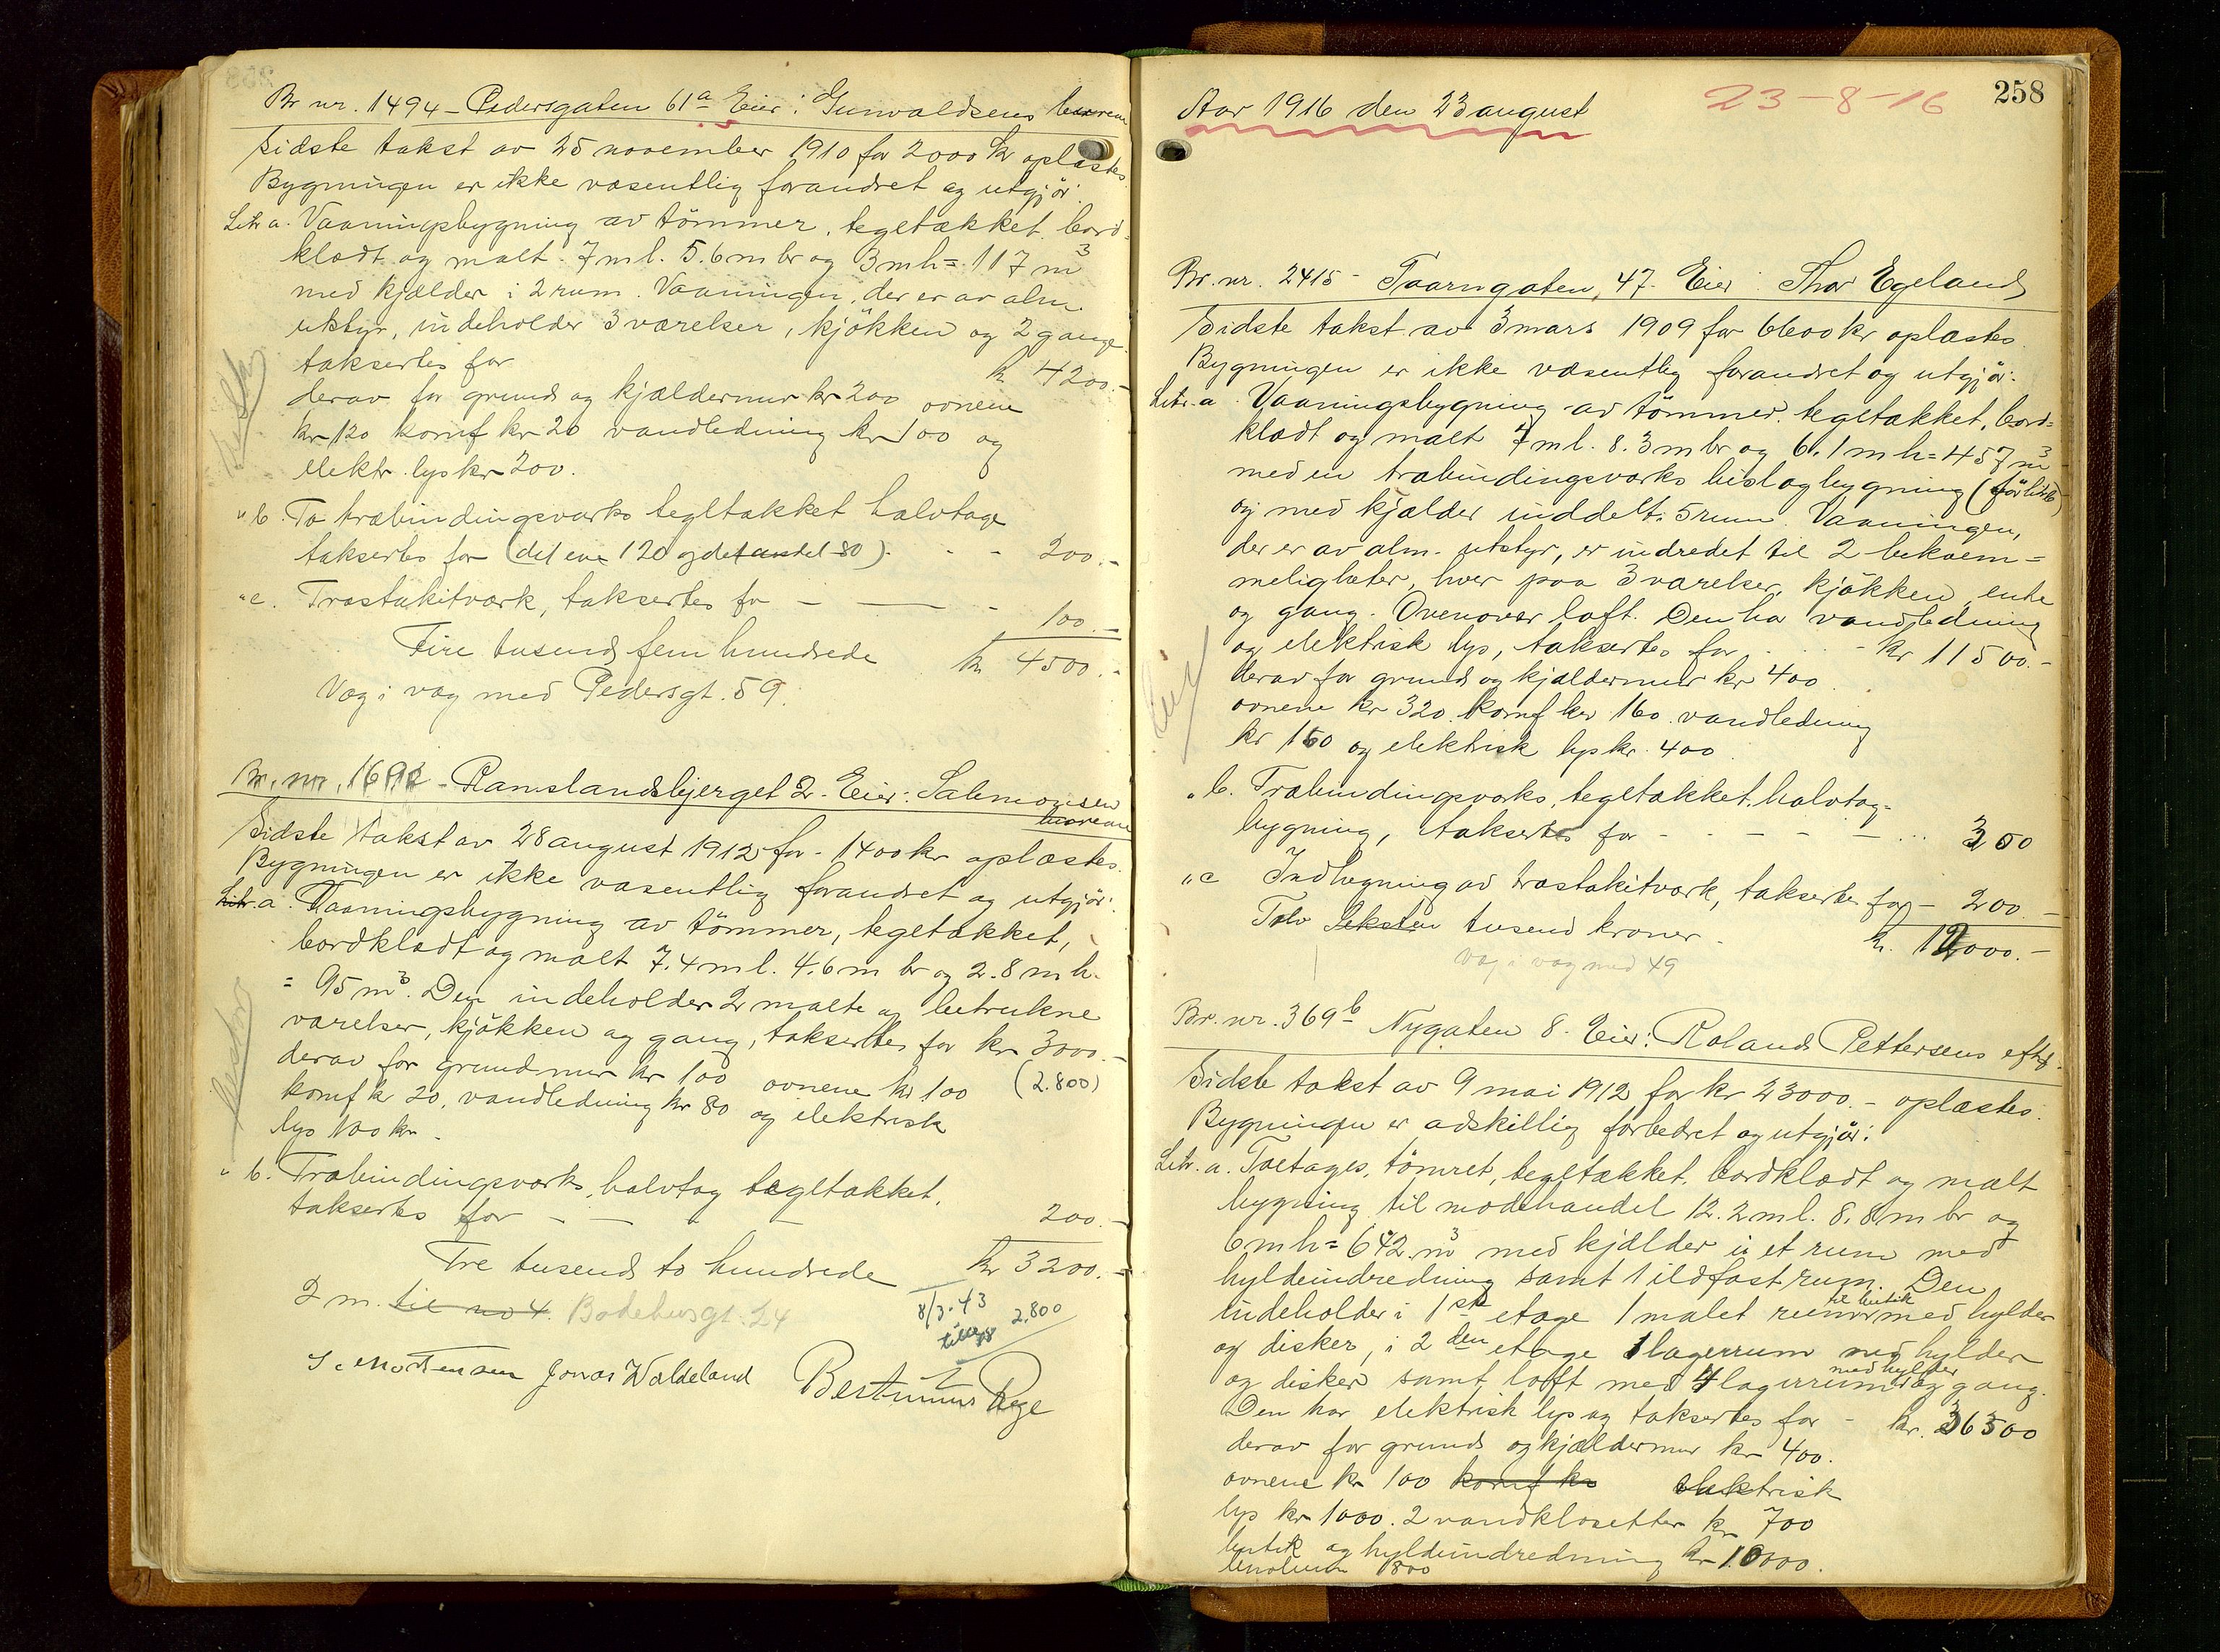 Br nr. 1494 – Pedersgaten 61a Eier: Gunvaldsens
Sidste takst av 25 november 1910 for 2000 kr oplæstes.
Bygningen er ikke væsentlig forandret og utgjör:
Litr a. Vaaningsbygning av tömmer, tegltækket, bord=
klædt og malt. 7 m l. 5.6 m br og 3 m h = 117 m3
med kjælder i 2 rum. Vaaningen, der er av alm.
utstyr, indeholder 3 værelser, kjökken og 2 gange
taksertes for kr 4200.-
derav for grund og kjældermur kr 200 ovnene
kr 120 komf kr 20 vandledning kr 100 og
elektr. lys kr 200.
" b. To træbindingsverks tegltækket halvtage
taksertes for (det ene 120 og det andet 80) - - 200.-
" c. Træstakitværk, taksertes for – — - 100.-
Fire tusend fem hundrede kr 4500.-
Væg i væg med Pedersgt. 59.
Br. nr. 1692 – Ramslandsbjerget 2. Eier: Salmonsen
Sidste takst av 28 august 1912 for - 1400 kr oplæstes.
Bygningen er ikke væsentlig forandret og utgjör:
Litr. a. Vaaningsbygning av tömmer, tegltækket,
bordklædt og malt 7.4 m l. 4.6 m br og 2.8 m h.
= 95 m3. Den indeholder 2 malte og betrukne
værelser, kjökken og gang, taksertes for kr 3000.-
derav for grundmur kr 100 ovnene kr 100 (2.800)
komf kr 20, vandledning kr 80 og elektrisk
lys 100 kr.
" b. Træbindingsværks, halvtag tegltækket,
taksertes for - — - - 200.-
Tre tusend to hundrede kr 3200.-
2 m. til no 4. Bødehusgt. 24
8/3-43 2.800
Mortensen Jonas Waldeland Bertinius Rege
258
Aar 1916 den 23 august 23-8-16
Br. nr. 2415 – Taarngaten, 47. Eier: Thor Egeland
Sidste takst av 3 mars 1909 for 6600 kr oplæstes.
Bygningen er ikke væsentlig forandret og utgjör:
Litr. a. Vaaningsbygning av tömmer, tegltækket, bord=
klædt og malt 7 m l. 8.3 m br og 6.1 m h = 457 m3
med en træbindingsværks bislagbygning
og med kjælder inddelt i 5 rum. Vaaningen,
der er av alm. utstyr, er indredet til 2 bekvem=
meligheter, hver paa 3 værelser, kjökken, ente
og gang. Ovenover loft. Den har vandledning
og elektrisk lys, taksertes for - - kr 11500.-
derav for grund og kjældermur kr 400.
ovnene kr 320. komf kr 160. vandledning
kr 160 og elektrisk lys kr. 400.
" b. Træbindingsværks, tegltækket, halvtag-
bygning, taksertes for - - - - — ... 300
" c Indhegning av træstakitværk, taksertes for – 200.-
Tolv Seksten tusend kroner. kr. 12000.-
væg i væg med 49
Br. nr. 369b Nygaten 8. Eier: Roland Pettersens eftf.
Sidste takst av 9 mai 1912 for kr 23000.- oplæstes.
Bygningen er adskillig forbedret og utgjör:
Litr. a. Toetages, tömret, tegltækket, bordklædt og malt
bygning til modehandel 12.2 m l. 8.8 m br og
6 m h = 642 m3 med kjælder i et rum med
hyldeindredning samt 1 ildfast rum. Den
indeholder i 1ste etage 1 malet rum til butik med hylder
og disker, i 2den etage 1 lagerrum med hylder
og disker samt loft med 4 lagerrum med hylder og gang.
Den har elektrisk lys og taksertes for - kr. 36500
derav for grund og kjældermur kr 400.
ovnene kr 100 komf kr elektrisk
lys kr 1000. 2 vandklosetter kr 700
butik og hyldeindredning kr 10000.
linoleum 1800